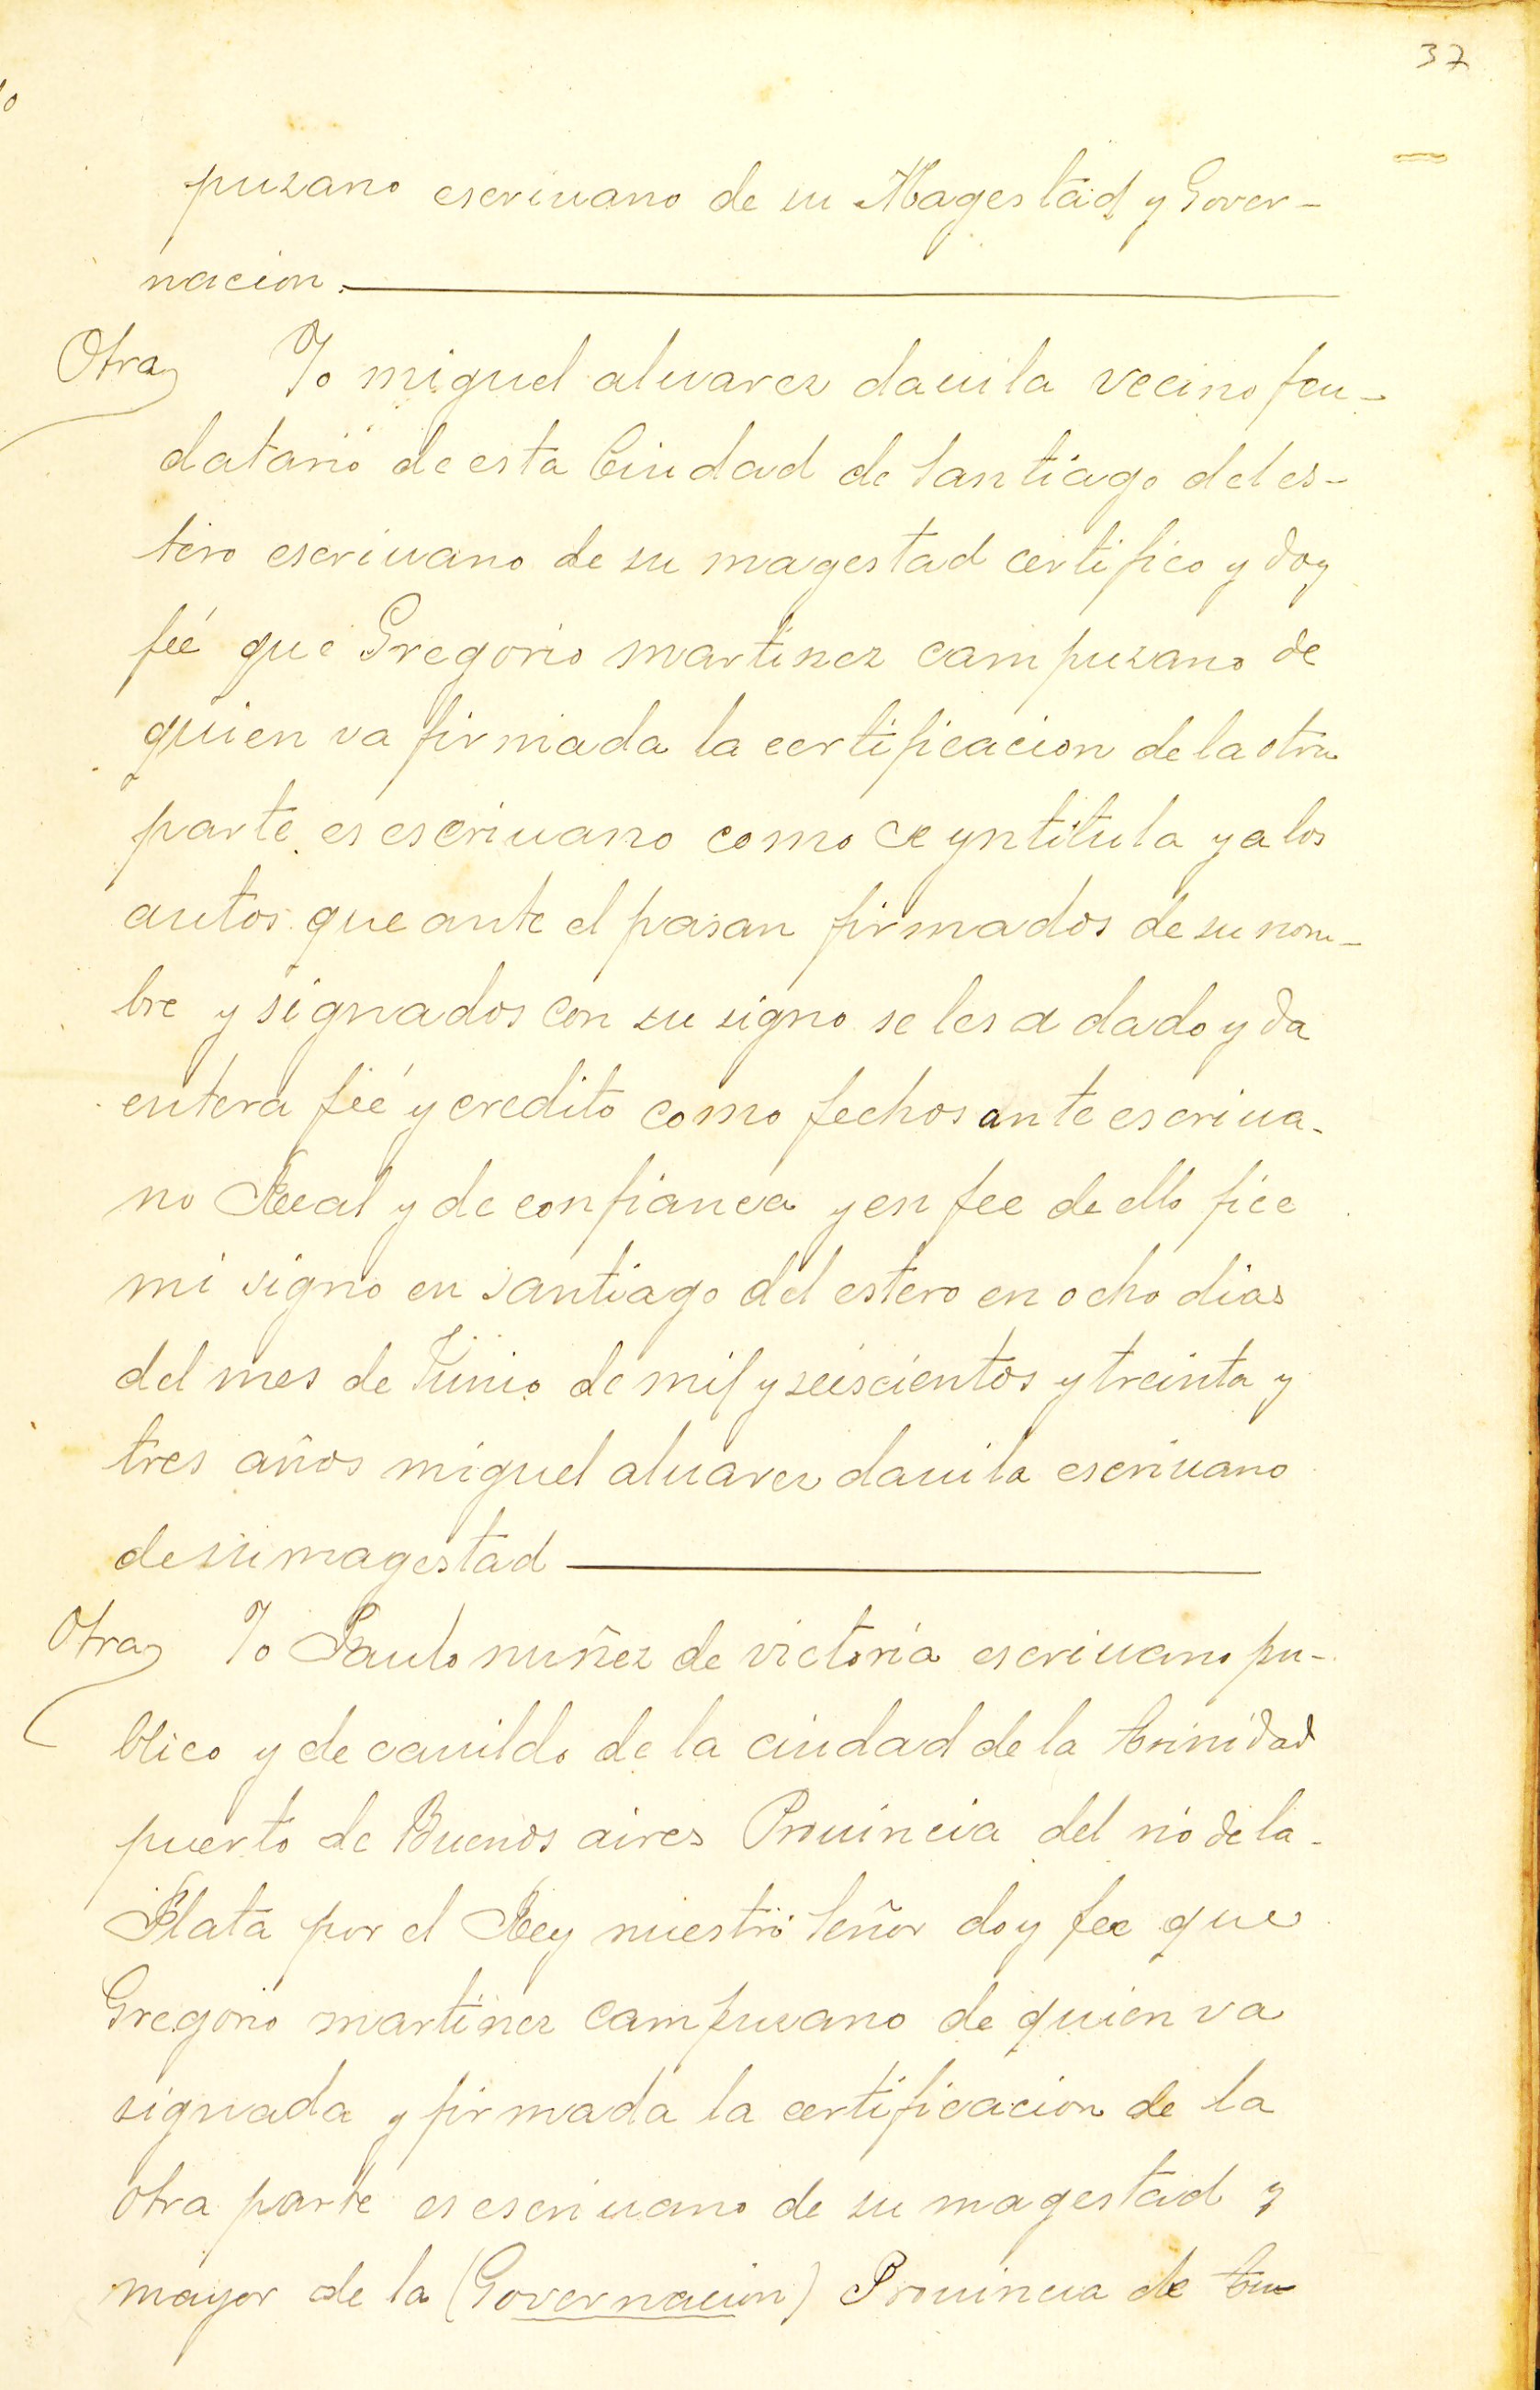 37
puzano escriuano de su Magestad y Gover-
nacion.
Otra Yo miguel aluarez dauila vecino feu-
datario de esta Ciudad de Santiago del es-
tero escriuano de su magestad certifico y doy
feé que Gregorio martinez campuzano de
quien va firmada la certificacion de la otra
parte es escriuano como se yntitula y a los
autos que ante el pasan firmados de su nom-
bre y signados con su signo se les a dado y da
entera feé y credito como fechos ante escriua-
no Real y de confianca y en fee de ello fice
mi signo en santiago del estero en ocho dias
del mes de Junio de mil y seiscientos y treinta y
tres años miguel aluarez dauila escriuano
de su magestad
Otra Yo Paulo nuñez de victoria escriuano pu-
blico y de cauildo de la ciudad de la trinidad
puerto de Buenos aires Prouincia del rio de la-
Plata por el Rey nuestro Señor doy fee que
Gregorio martinez campuzano de quien va
signada y firmada la certificacion de la
otra parte es escriuano de su magestad y
mayor de la (Governacion) Prouincia de tu